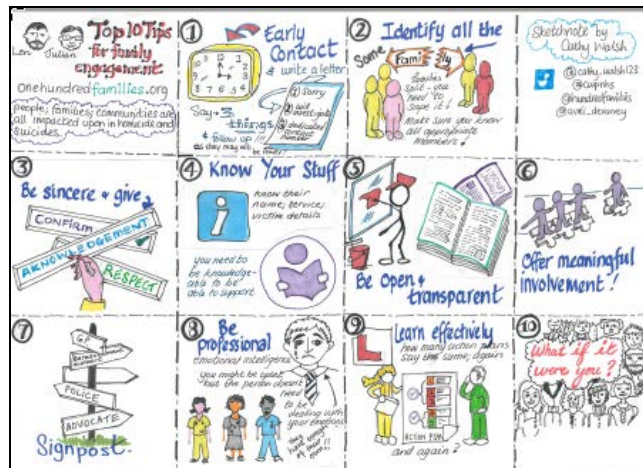 Len
Julian
Top 10 Tips
for family
engagement
onehundredfamilies.org
people, families, communities are
all impacted upon in homicide and
suicides.
1
Early
Contact
& write a letter
Say 3
things
& follow up!!!
as they may not be ready!
1 Sorry
2 will
investigate
3 dedicated
contact
number
2
Identify all the
Some
Fami
lly
families
split - you
need to
scope it!
Make sure you know
all appropriate
members!
Sketchnote by
Cathy Walsh
@cathy_walsh123
@hundredfamilies
3
Be sincere & give
CONFIRM
AKNOWLEDGEMENT
RESPECT
4
Know Your Stuff
i
know their
name; service;
victim details
you need to
be knowledge-
able to be
able to support
5
Be Open &
transparent
6
Offer meaningful
involvement!
7
GP
POLICE
ADVOCATE
Signpost.
8
Be
professional
emotional intelligence
you might be upset
but the person doesn't
need
to be
dealing with
your emotions
they
have enough
of their
own!!
9
Learn effectively
L
how many action plans
stay the same; again
ACTION PLAN
and again?
10
What if it
were you?